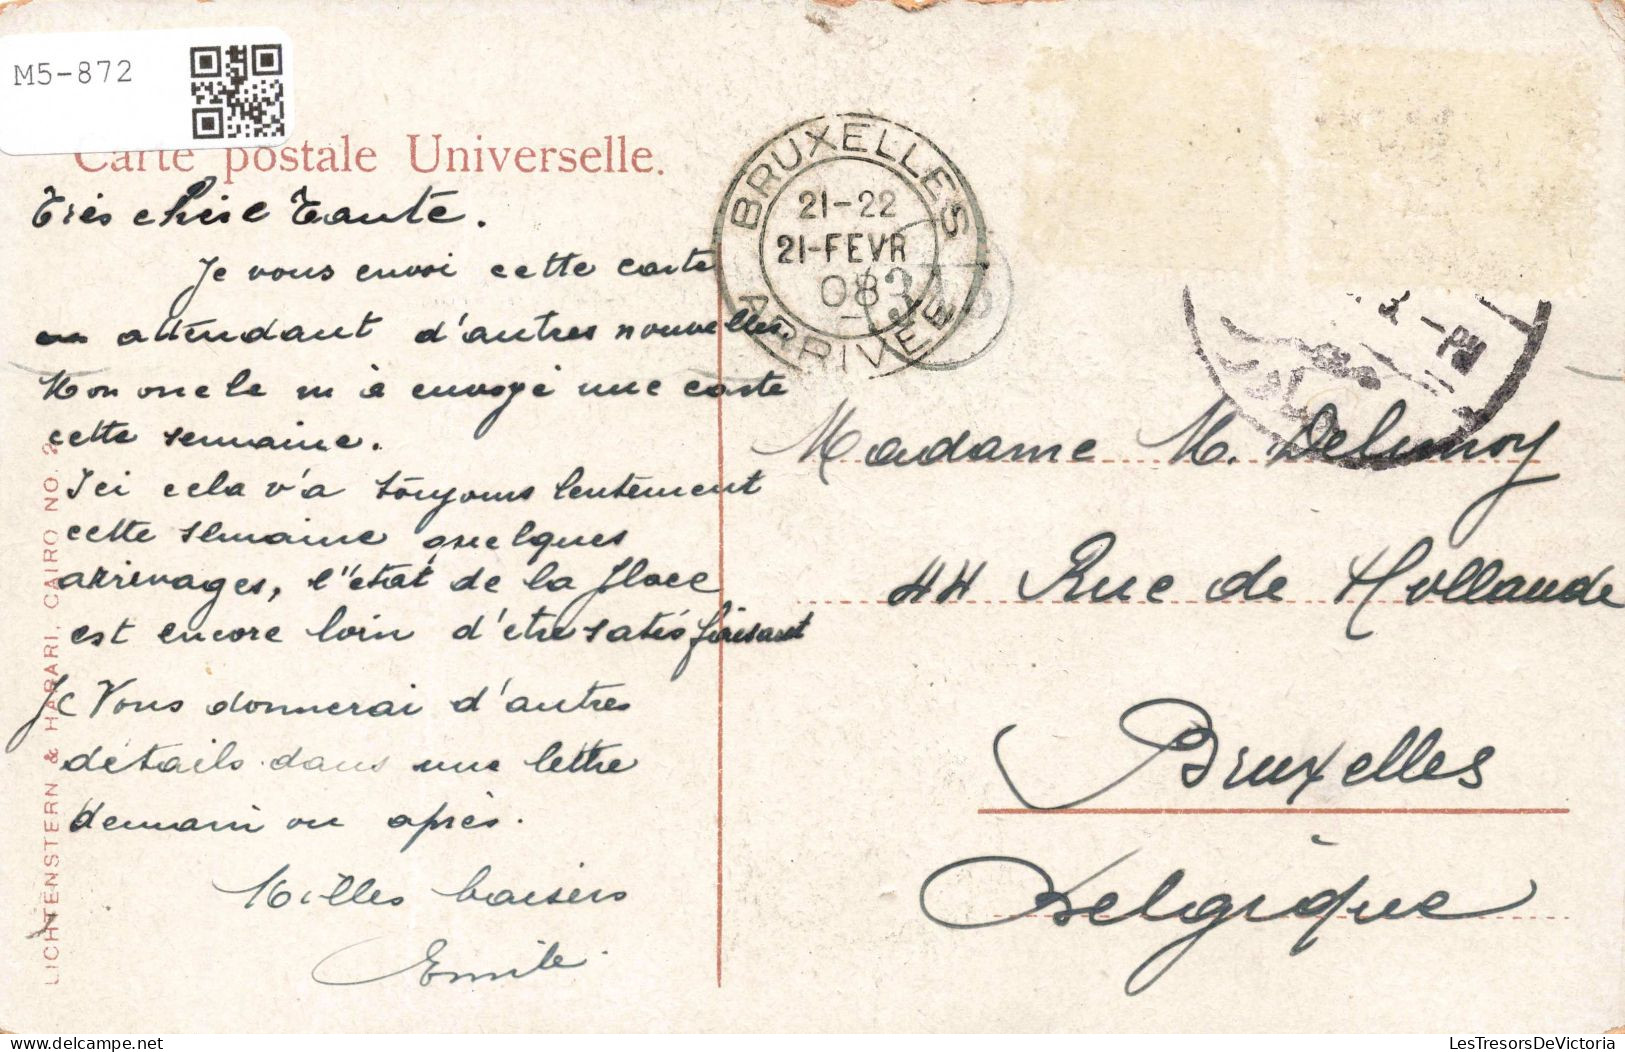 M5-872
Carte postale Universelle.
Très chère Tante.
Je vous envoi cette carte
en attendant d'autres nouvelles.
Mon oncle m'à envoyé une carte
cette semaine.
Ici cela v'a toujours lentement
cette semaine quelques
arrivages, l'état de la place
est encore loin d'etre satisfaisant
Je Vous donnerai d'autres
détails dans une lettre
demain ou après.
Milles baisers
Emile.
LICHTENSTERN & HARARI, CAIRO NO. 2
BRUXELLES
21-22
21-FEVR
08
ARRIVEE
3
3 -PM
Madame M. Delunoy
44 Rue de Hollande
Bruxelles
Belgique
delcampe.net
LesTresorsDeVictoria